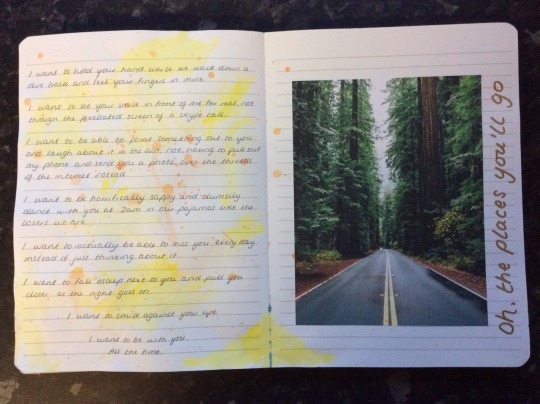 I want to hold your hand while we walk down a
dirt track and feel your fingers in mine.
I want to see your smile in front of me for real, not
through the pixellated screen of a skype call.
I want to be able to point something out to you
and laugh about it in the car, not having to pull out
my phone and send you a photo over the threads
of the internet instead.
I want to be horrifically sappy and clumsily
dance with you at 2am in our pajamas like the
losers we are.
I want to actually be able to kiss you every day
instead of just thinking about it.
I want to fall asleep next to you and pull you
closer as the night goes on.
I want to smile against your lips.
I want to be with you.
All the time.
Oh, the places you'll go